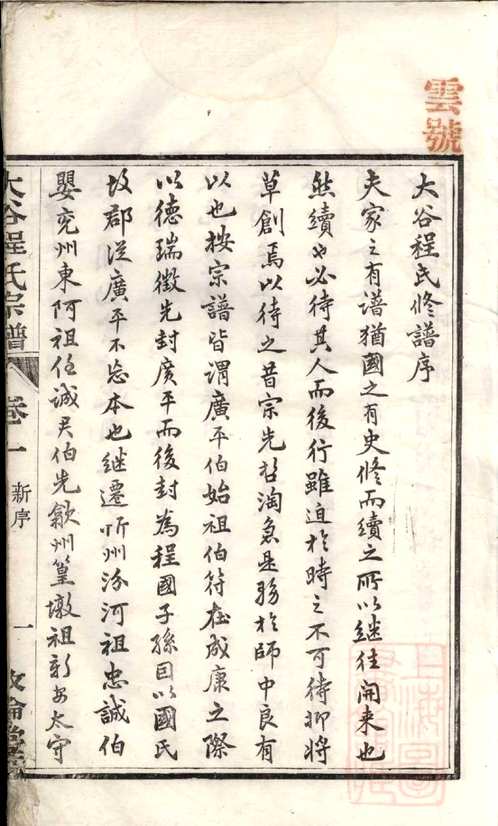 雲號
大谷程氏修譜序
夫家之有譜猶國之有史修而續之所以继往開来也
然續也必待其人而後行雖迫於時之不可待抑將
草創焉以待之昔宗先哲淘急是務於師中良有
以也按宗譜皆謂廣平伯始祖伯符在成康之際
以德瑞徵先封廣平而後封為程國子孫因以國氏
故郡從廣平不忘本也继遷忻州汾河祖忠誠伯
嬰兖州東阿祖任誠君伯先歙州篁墩祖新安太守
大谷程氏宗譜 卷一 新序 一 敦倫堂
上海圖